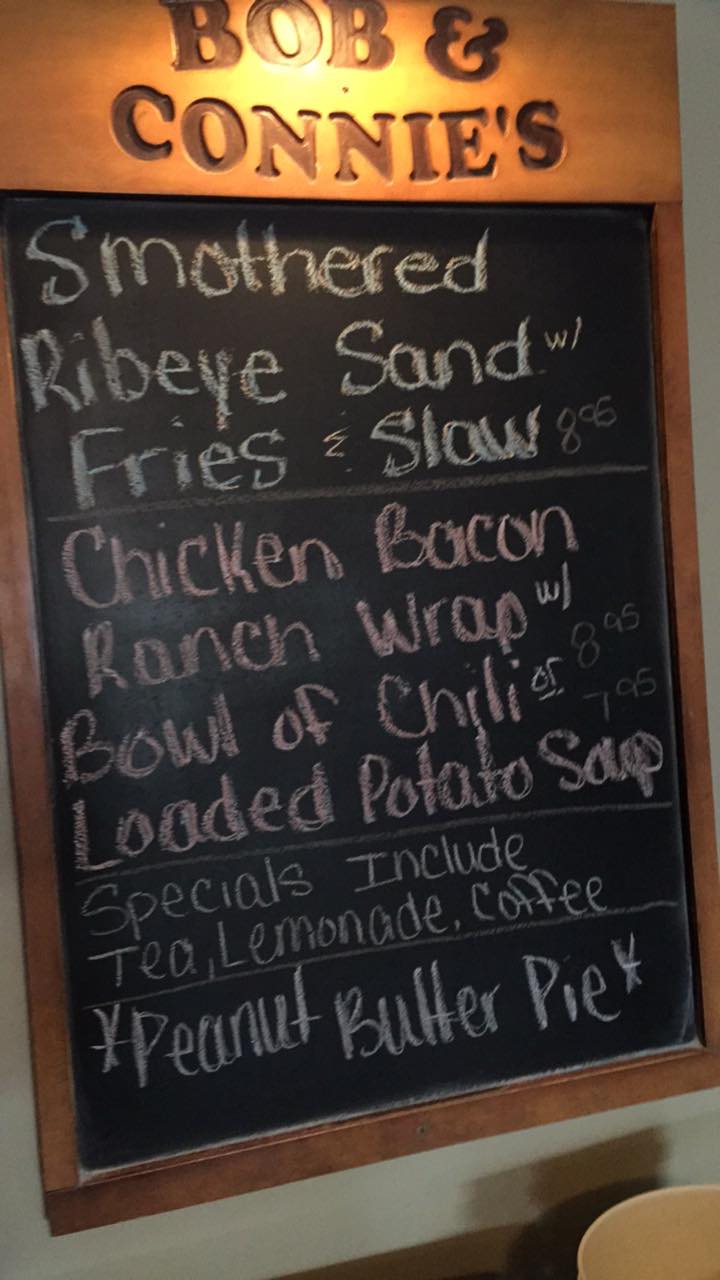 BOB &
CONNIE'S
Smothered
Ribeye Sand w/
Fries & Slaw 8 95
Chicken Bacon
Ranch Wrap w/ 8 95
Bowl of Chili or 7 95
Loaded Potato Soup
Specials Include
Tea, Lemonade, Coffee
*Peanut Butter Pie*